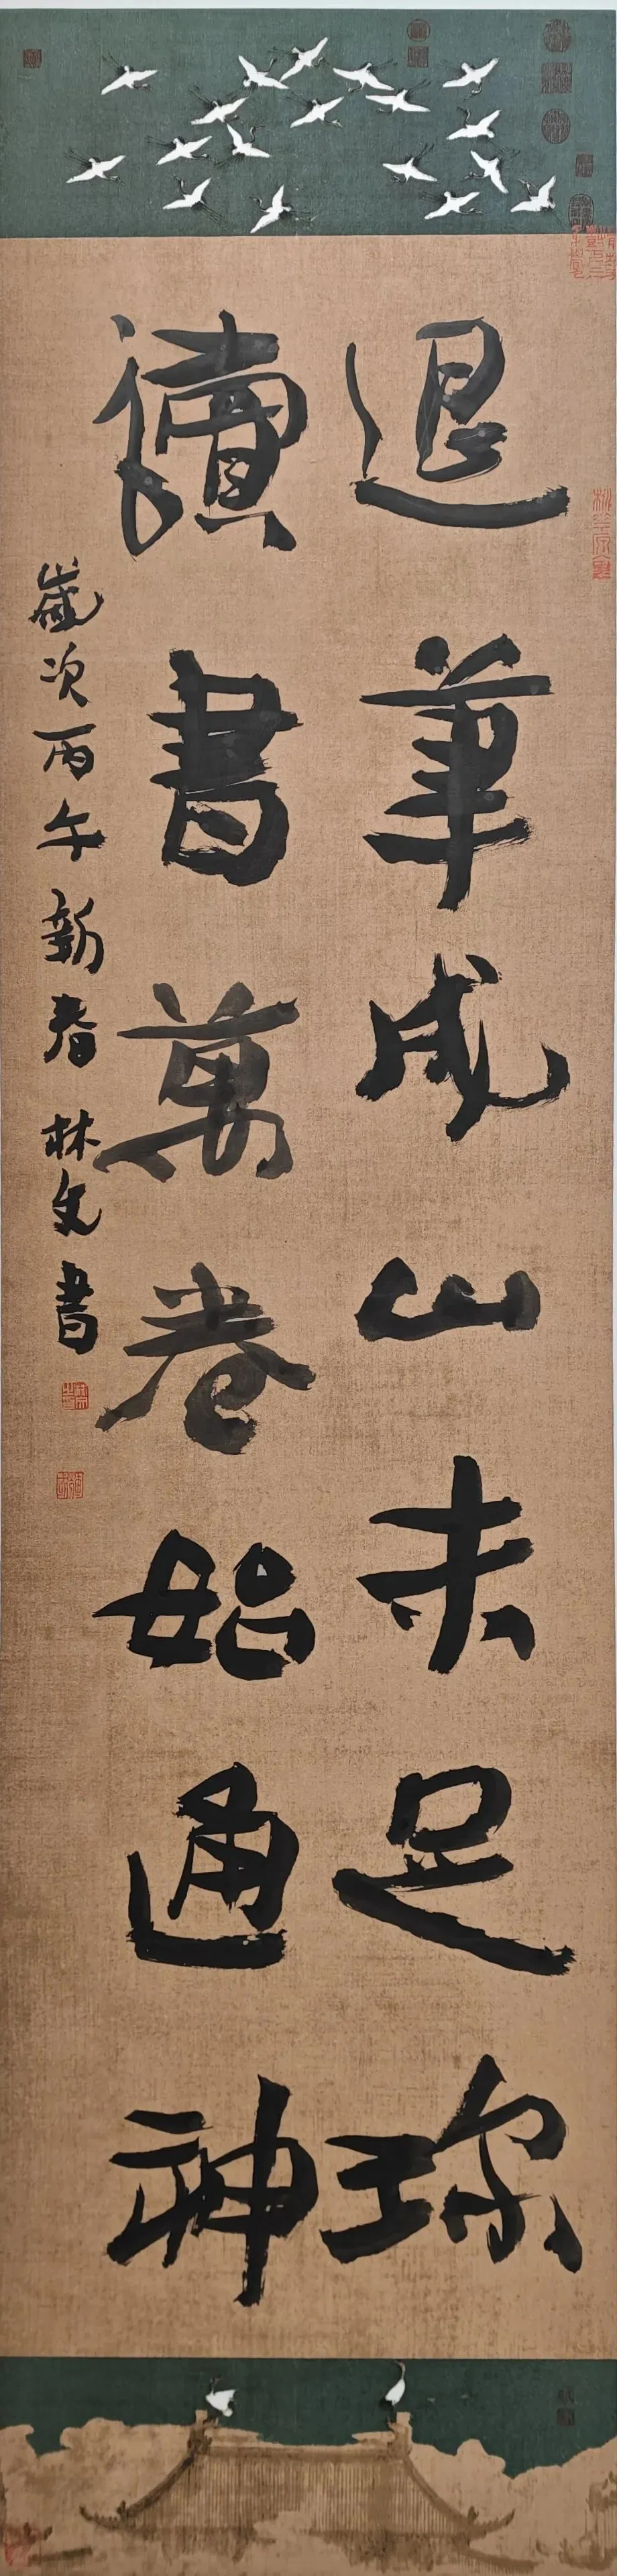 退筆成山未足珎
讀書萬卷始通神
歲次丙午新春林文書